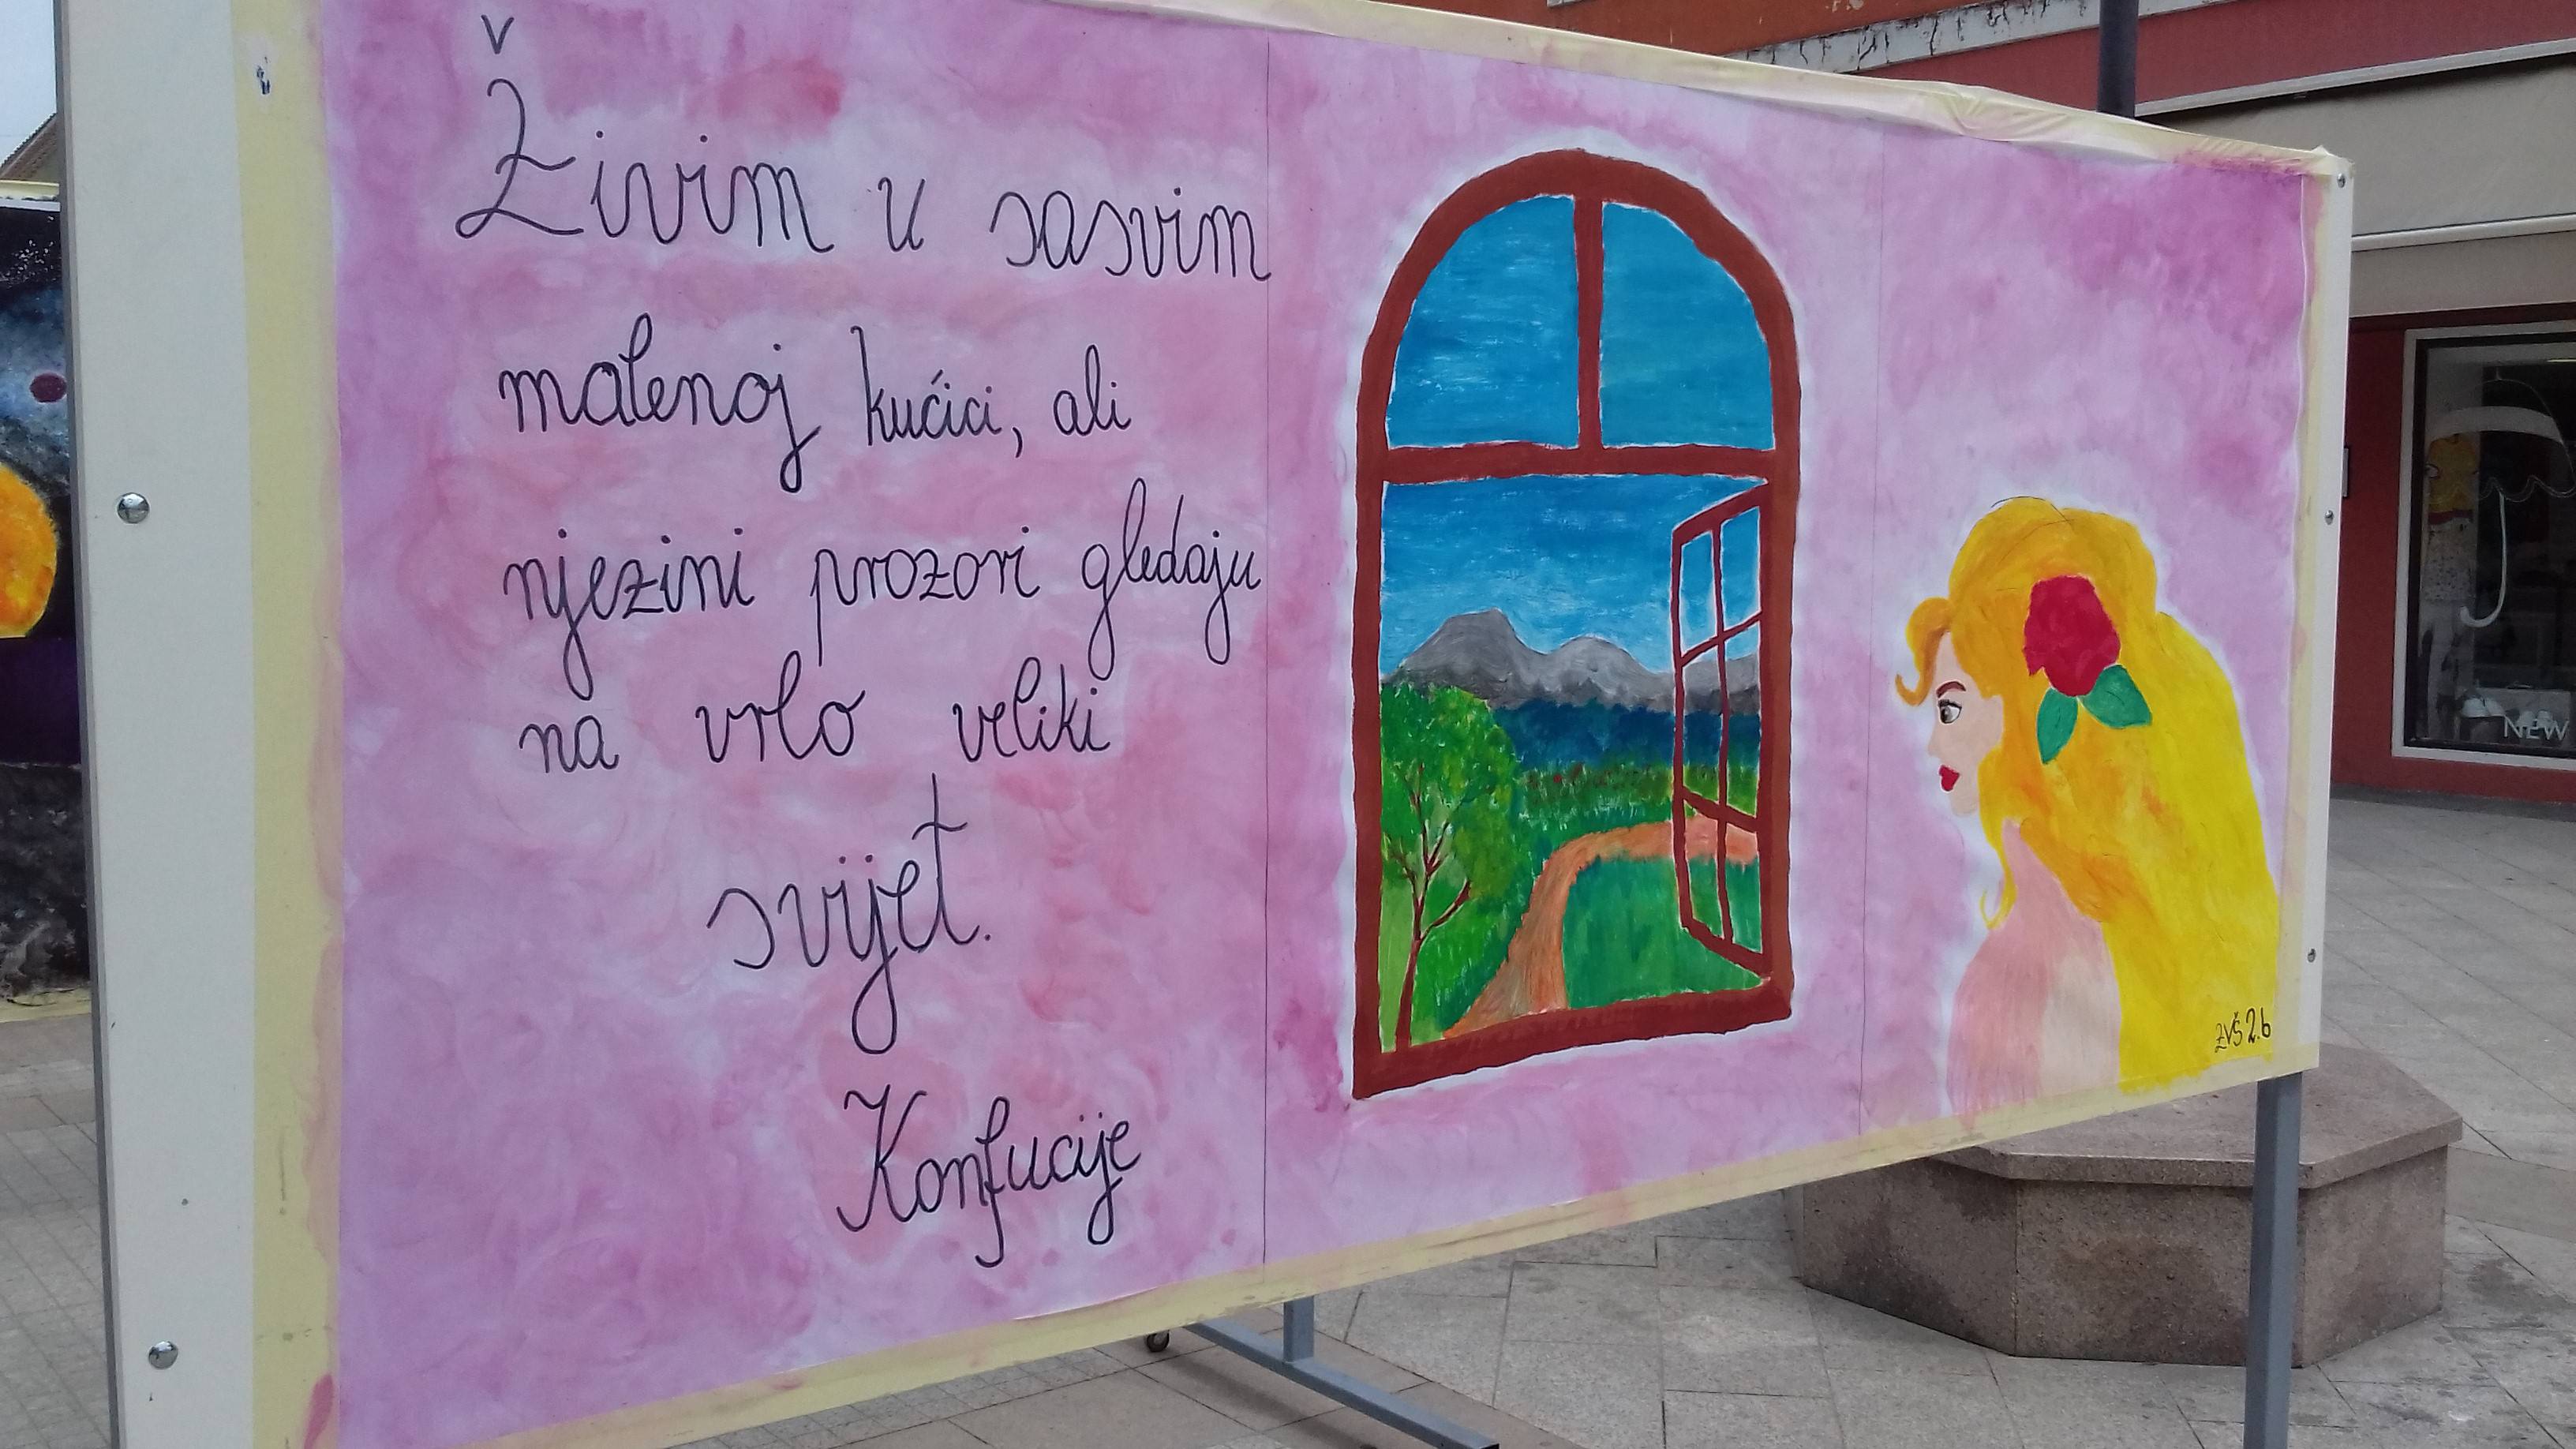 Živim u sasvim
malenoj kućici, ali
njezini prozori gledaju
na vrlo veliki
svijet.
Konfucije
ZVŠ 2.b
NEW